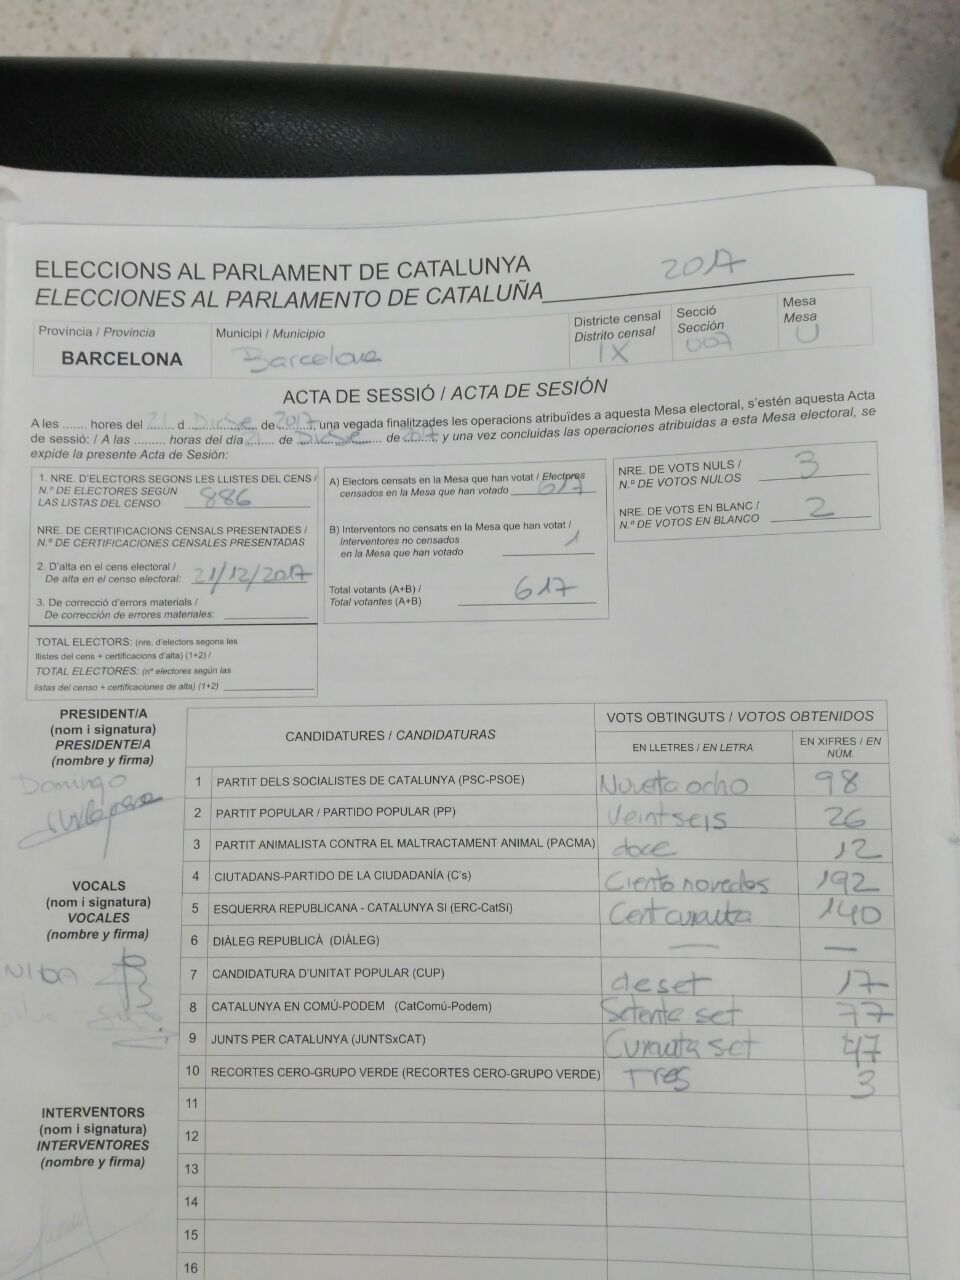 ELECCIONS AL PARLAMENT DE CATALUNYA
ELECCIONES AL PARLAMENTO DE CATALUÑA 2017
Província / Provincia
BARCELONA
Municipi / Municipio
Barcelona
Districte censal
Distrito censal
IX
Secció
Sección
007
Mesa
Mesa
U
ACTA DE SESSIÓ / ACTA DE SESIÓN
A les ....... hores del 21 d Dicbre de 2017, una vegada finalitzades les operacions atribuïdes a aquesta Mesa electoral, s'estén aquesta Acta
de sessió: / A las ......... horas del día 21 de Dicbre de 2017, y una vez concluidas las operaciones atribuidas a esta Mesa electoral, se
expide la presente Acta de Sesión:
1. NRE. D'ELECTORS SEGONS LES LLISTES DEL CENS /
N.º DE ELECTORES SEGÚN
LAS LISTAS DEL CENSO 886
NRE. DE CERTIFICACIONS CENSALS PRESENTADES /
N.º DE CERTIFICACIONES CENSALES PRESENTADAS
2. D'alta en el cens electoral /
De alta en el censo electoral: 21/12/2017
3. De correcció d'errors materials /
De corrección de errores materiales:
TOTAL ELECTORS: (nre. d'electors segons les
llistes del cens + certificacions d'alta) (1+2) /
TOTAL ELECTORES: (nº electores según las
listas del censo + certificaciones de alta) (1+2)
A) Electors censats en la Mesa que han votat / Electores
censados en la Mesa que han votado 617
B) Interventors no censats en la Mesa que han votat /
Interventores no censados
en la Mesa que han votado 1
Total votants (A+B) /
Total votantes (A+B) 617
NRE. DE VOTS NULS /
N.º DE VOTOS NULOS 3
NRE. DE VOTS EN BLANC /
N.º DE VOTOS EN BLANCO 2
PRESIDENT/A
(nom i signatura)
PRESIDENTE/A
(nombre y firma)
Domingo
VOCALS
(nom i signatura)
VOCALES
(nombre y firma)
INTERVENTORS
(nom i signatura)
INTERVENTORES
(nombre y firma)
CANDIDATURES / CANDIDATURAS
VOTS OBTINGUTS / VOTOS OBTENIDOS
EN LLETRES / EN LETRA
EN XIFRES / EN
NÚM.
1 PARTIT DELS SOCIALISTES DE CATALUNYA (PSC-PSOE) Noveta ocho 98
2 PARTIT POPULAR / PARTIDO POPULAR (PP) Veintseis 26
3 PARTIT ANIMALISTA CONTRA EL MALTRACTAMENT ANIMAL (PACMA) doce 12
4 CIUTADANS-PARTIDO DE LA CIUDADANÍA (C's) Ciento novedos 192
5 ESQUERRA REPUBLICANA - CATALUNYA SI (ERC-CatSí) Cent curauta 140
6 DIÀLEG REPUBLICÀ (DIÀLEG) — —
7 CANDIDATURA D'UNITAT POPULAR (CUP) deset 17
8 CATALUNYA EN COMÚ-PODEM (CatComú-Podem) Setenta set 77
9 JUNTS PER CATALUNYA (JUNTSxCAT) Curauta set 47
10 RECORTES CERO-GRUPO VERDE (RECORTES CERO-GRUPO VERDE) Tres 3
11
12
13
14
15
16